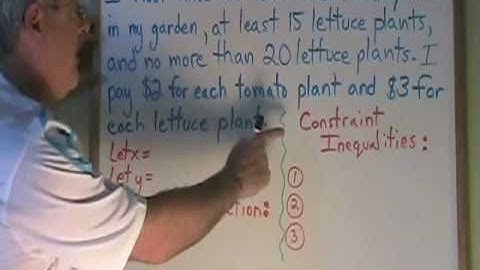 in my garden, at least 15 lettuce plants,
and no more than 20 lettuce plants. I
pay $2 for each tomato plant and $3 for
each lettuce plant.
Constraint
Inequalities:
Let x =
Let y =
ction:
①
②
③